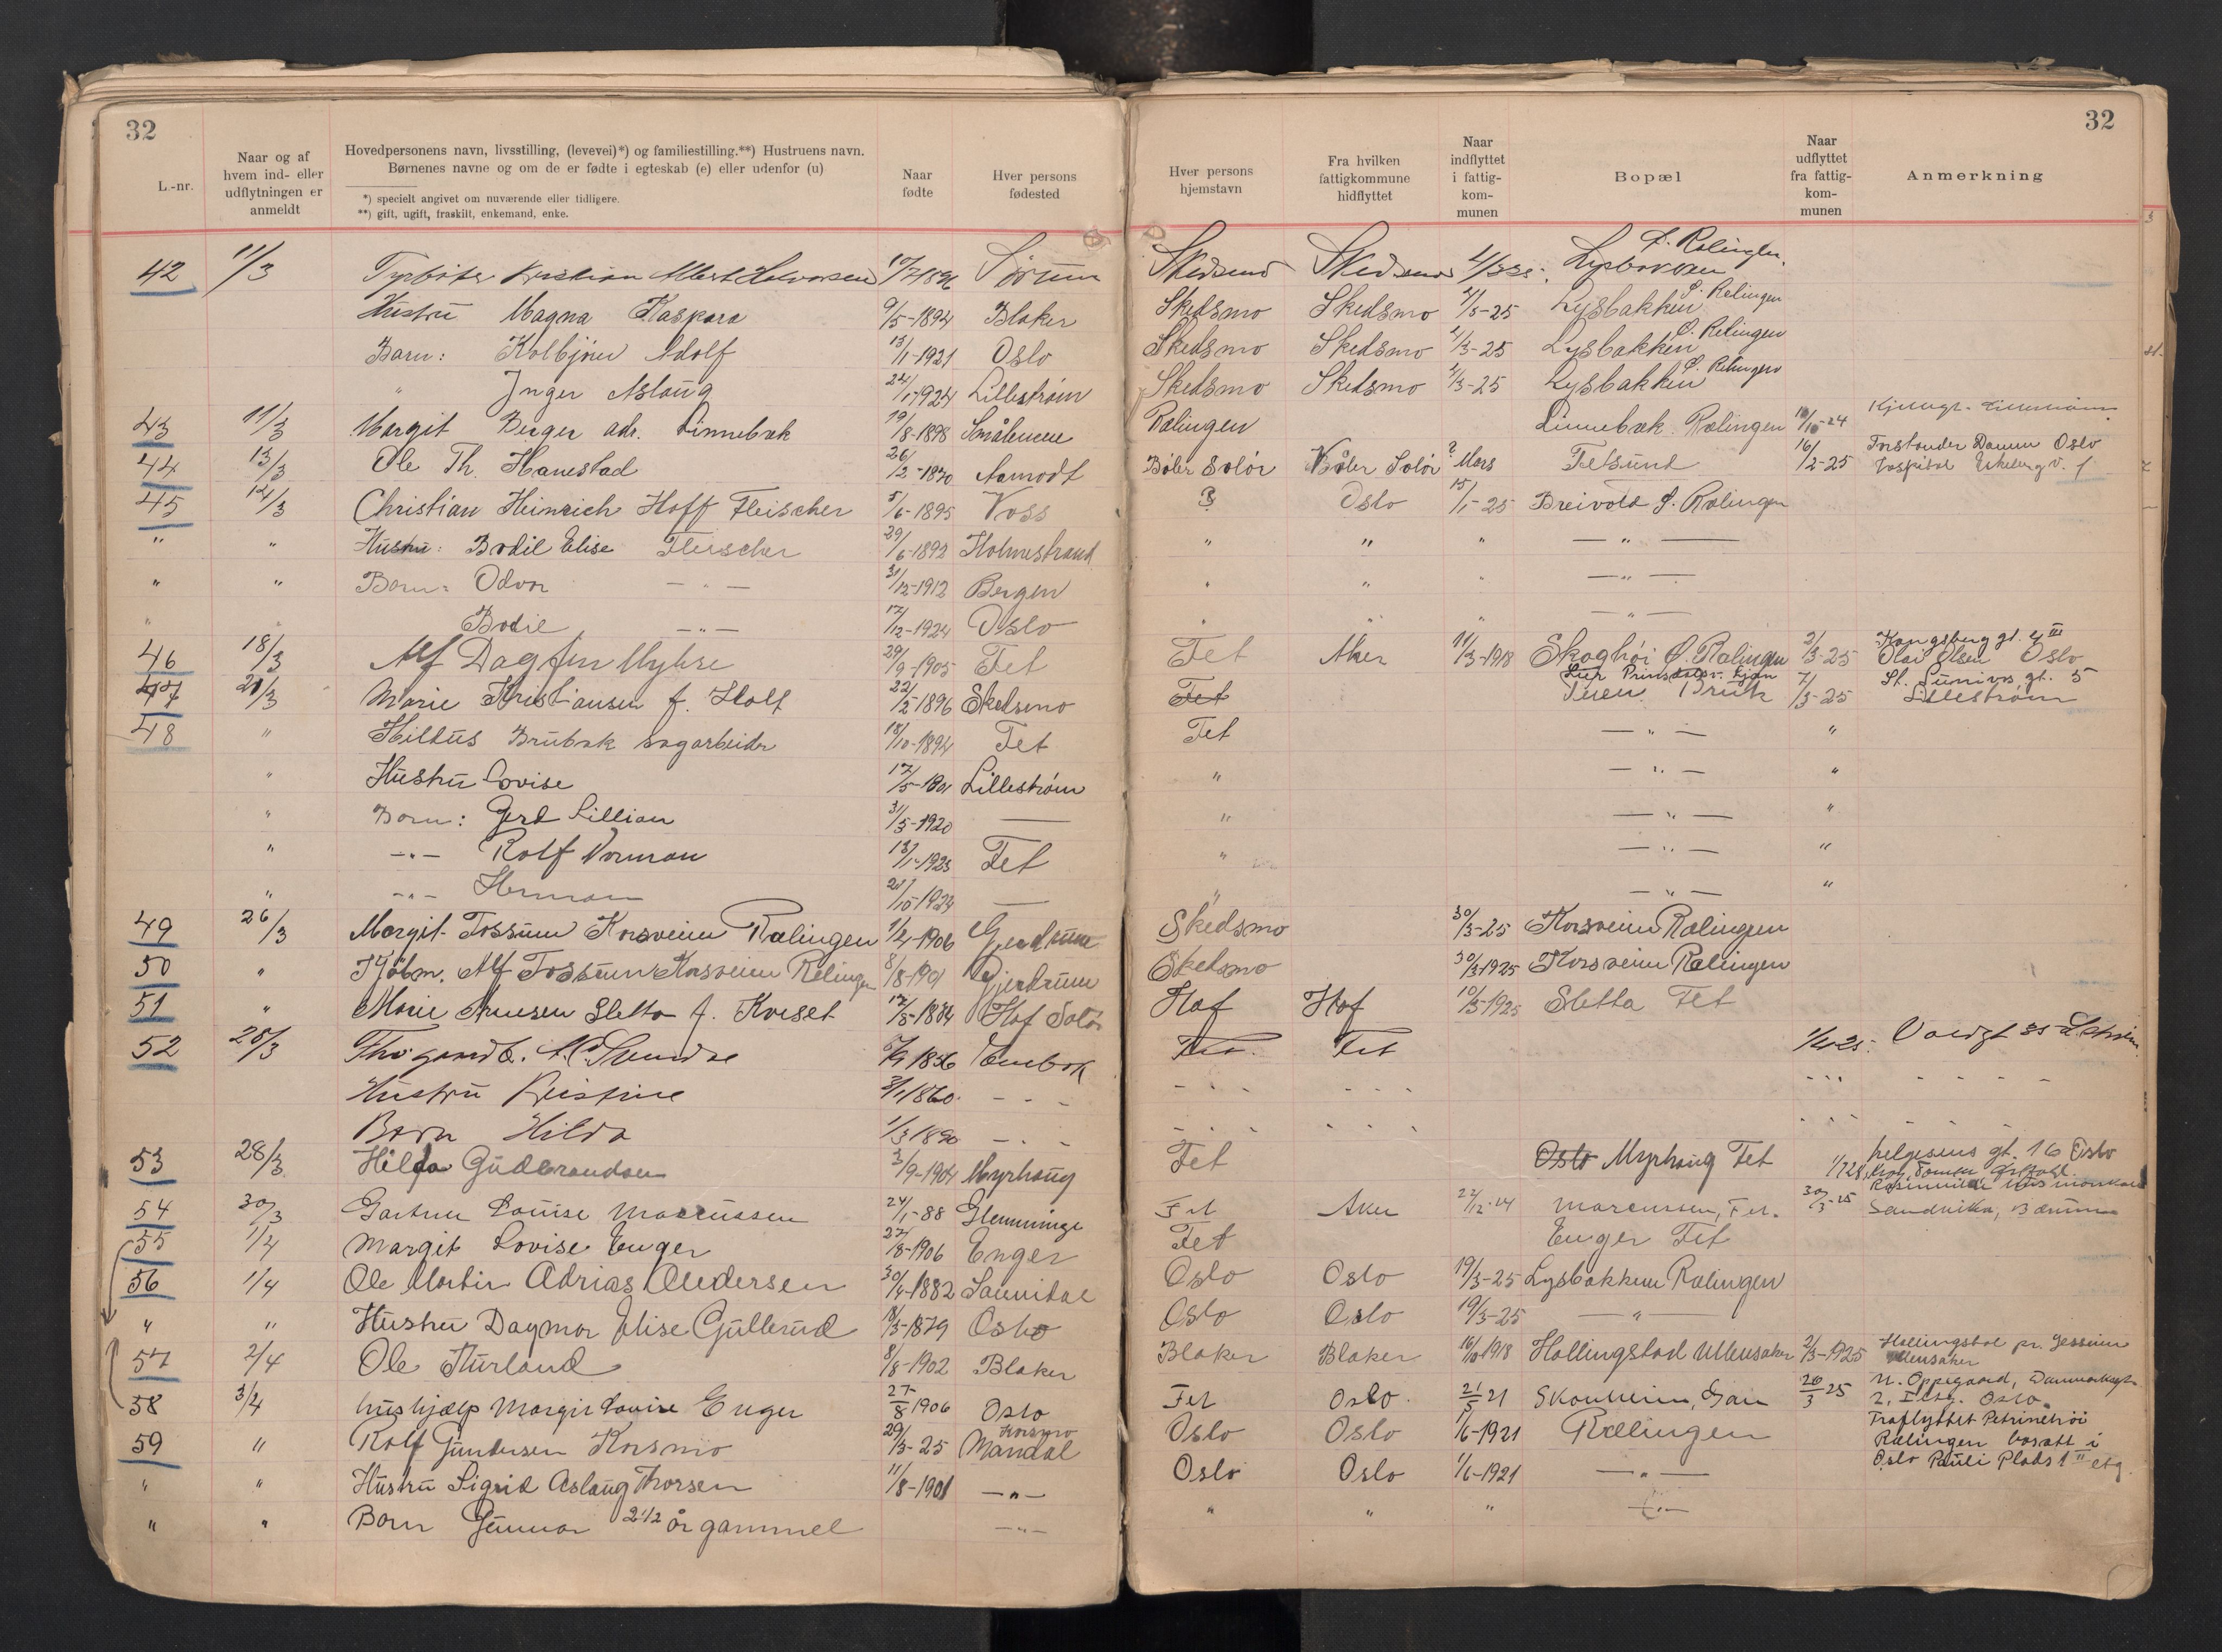 32
L.-nr.
Naar og af hvem ind- eller udflytningen er anmeldt
Hovedpersonens navn, livsstilling, (levevei)*) og familiestilling.**) Hustruens navn.
Børnenes navne og om de er fødte i egteskab (e) eller udenfor (u)
*) specielt angivet om nuværende eller tidligere.
**) gift, ugift, fraskilt, enkemand, enke.
Naar fødte
Hver persons fødested
32
Hver persons hjemstavn
Fra hvilken fattigkommune hidflyttet
Naar indflyttet i fattig-kom-munen
Bopæl
Naar udflyttet fra fattig-kom-munen
Anmerkning
42 11/3 Kristian Albert Halvorsen 10/7 1896 Sørum Skedsmo Skedsmo Ø. Rælingen
Hustru Magna Kaspara 9/5-1894 Blaker Skedsmo Skedsmo 4/3-25 Lysbakken Ø. Rælingen
Barn: Kolbjörn Adolf 13/1-1921 Oslo Skedsmo Skedsmo 4/3-25 Lysbakken Ø. Rælingen
" Inger Aslaug 24/1-1924 Lillestrøm Skedsmo Skedsmo 4/3-25 Lysbakken Ø. Rælingen
43 11/3 Margit Berger adr. Linnebæk 19/8-1898 Smålenene Rælingen Linnebæk Rælingen 10/10-24 Lillestrøm
44 13/3 Ole Th. Hanestad 26/2-1870 Aamodt Våler Solør Våler Solør ? Mars Fetsund 16/2-25 Forstander Damm Oslo
Hospital Ekebergv. 1
45 14/3 Christian Heinrich Hoff Fleischer 5/6-1895 Voss ? Oslo 15/1-25 Breivold Ø. Rælingen
" " Hustru: Bodil Elise Fleischer 29/6-1892 Holmestrand " " " — " —
" " Barn: Odvar — " — 31/12-1912 Bergen " " " — " —
" " Bodil — " — 17/12-1924 Oslo " " " — " —
46 18/3 Alf Dagfin Myhre 29/9-1905 Fet Fet Aker 11/3-1918 Skoghøi Ø. Rælingen 2/3-25 Kongsberg gt. 4 III
Olai Olsen Oslo
47 21/3 Marie Kristiansen f. Holt 22/2-1896 Skedsmo Fet Tuen Bruk 7/3-25 St. Sunivas gt. 5
Lillestrøm
48 " Hilbus Brubæk sagarbeider 18/10-1894 Fet Fet — " — "
" Hustru Lovise 17/5-1901 Lillestrøm " — " — "
" Barn: Gerd Lillian 31/5-1920 — " — " — "
" — " — Rolf Norman 13/1-1923 Fet " — " — "
" — " — Herman 20/10-1924 — " — " — "
49 26/3 Margit Fossum Korsveien Rælingen 1/4-1906 Gjerdrum Skedsmo 30/3-25 Korsveien Rælingen
50 " Kjöbm. Alf Fossum Korsveien Rælingen 8/8-1901 Gjerdrum Skedsmo 30/3-1925 Korsveien Rælingen
51 " Marie Arnesen Sletta f. Kveset 17/5-1884 Hof Solør Hof Hof 10/3-1925 Sletta Fet
52 28/3 1856 Enebak Fet. Fet 1/4-25. Voldgt 35 L.strøm.
Hustru Kristine 1860 - " - - " - - " - - " -
Barn Hilda 1/3 1890 - " - - " - - " -
53 28/3 Hilda Gudbrandsen 3/9-1904 Myrhaug Fet Oslo Myrhaug Fet helgesens gt. 16 Oslo
54 30/3 Gartner Louise Marcussen 24/1-88 Glemminge Fet Aker 22/12-14 Marcussen, Fet. 30/3-25
Sandvika, Bærum
55 1/4 Margit Lovise Enger 27/8-1906 Enger Fet Enger Fet
56 1/4 Ole Martin Adrias Andersen 30/4-1882 Sannidal Oslo Oslo 19/3-25 Lysbakken Rælingen
" " Hustru Dagmar Elise Gullerud 18/3-1879 Oslo Oslo Oslo 19/3-25 — " —
57 2/4 Ole Hurland 8/8-1902 Blaker Blaker Blaker 16/10-1918 Hallingstad Ullensaker 2/3-1925 Hallingstad pr. Jessheim
Ullensaker
58 3/4 hushjælp Margit Louise Enger 27/8 1906 Oslo Fet Oslo. 21/5 21 Skovheim, Gan 26/3 25 N. Oppegaard, Danmarksgt.
2. Etg. Oslo.
59 " Rolf Gundersen Korsmo 29/3-25 Korsmo Mandal Oslo Oslo 1/6-1921 Rælingen Fraflyttet Petrinehöi
Rælingen bosatt i
Oslo Pauli Plads 1 II etg.
" " Hustru Sigrid Aslaug Thorsen 11/8-1901 — " — Oslo Oslo 1/6-1921 — " —
" " Barn Gunnar 2 1/2 år gammel — " — " " " — " —